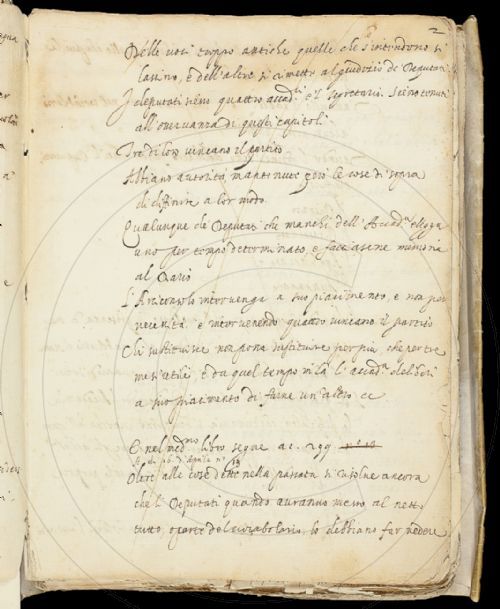 2
Delle voci troppo antiche quelle che s'intendono si
lascino, e dell'altre si rimette al giudizio de Deputati
I deputati sieno quattro accad.ci e'l segretario. Sieno tenuti
all'osservanza di questi capitoli.
Tre di loro vincano il partito.
Abbiano autorità mantenute però le cose di sopra
di diffinire a lor modo.
Qualunque de Deputati che manchi dell'Accad.a elegga
uno per tempo determinato, e facciasene memoria
al Diario
L'Arciconsolo intervenga a suo piacimento, e non per
necessità e intervenendo quattro vincano il partito
Chi sustituisce non possa sustituire per più, che per tre
mesi utili e da quel tempo in là l'accad.a deliberi
a suo piacimento di farne un'altro ec
E nel med.mo libro segue a c. 299
di 16. d'Aprile
Oltre alle cose dette nella passata si risolve ancora
che i Deputati quando avranno messo al netto
tutto, o parte del vocabolario, lo debbiano far vedere